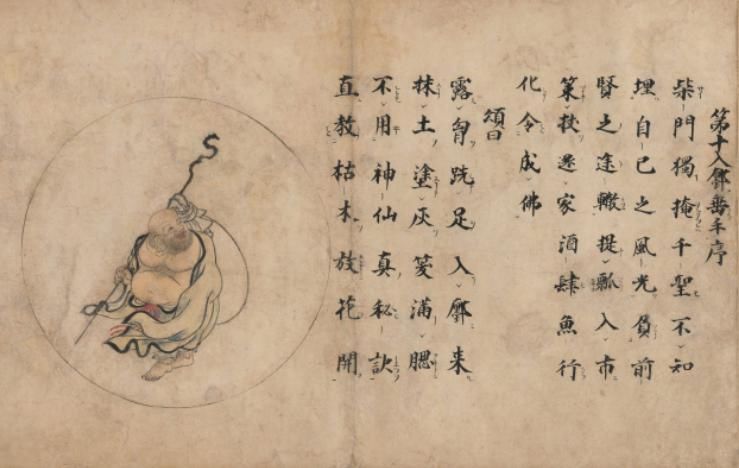 第十入鄽垂手序
柴門獨掩千聖不知
埋自己之風光負前
賢之途轍提瓢入市
策杖還家酒肆魚行
化令成佛
頌曰
露胷跣足入鄽来
抹土塗灰笑滿腮
不用神仙真秘訣
直教枯木放花開